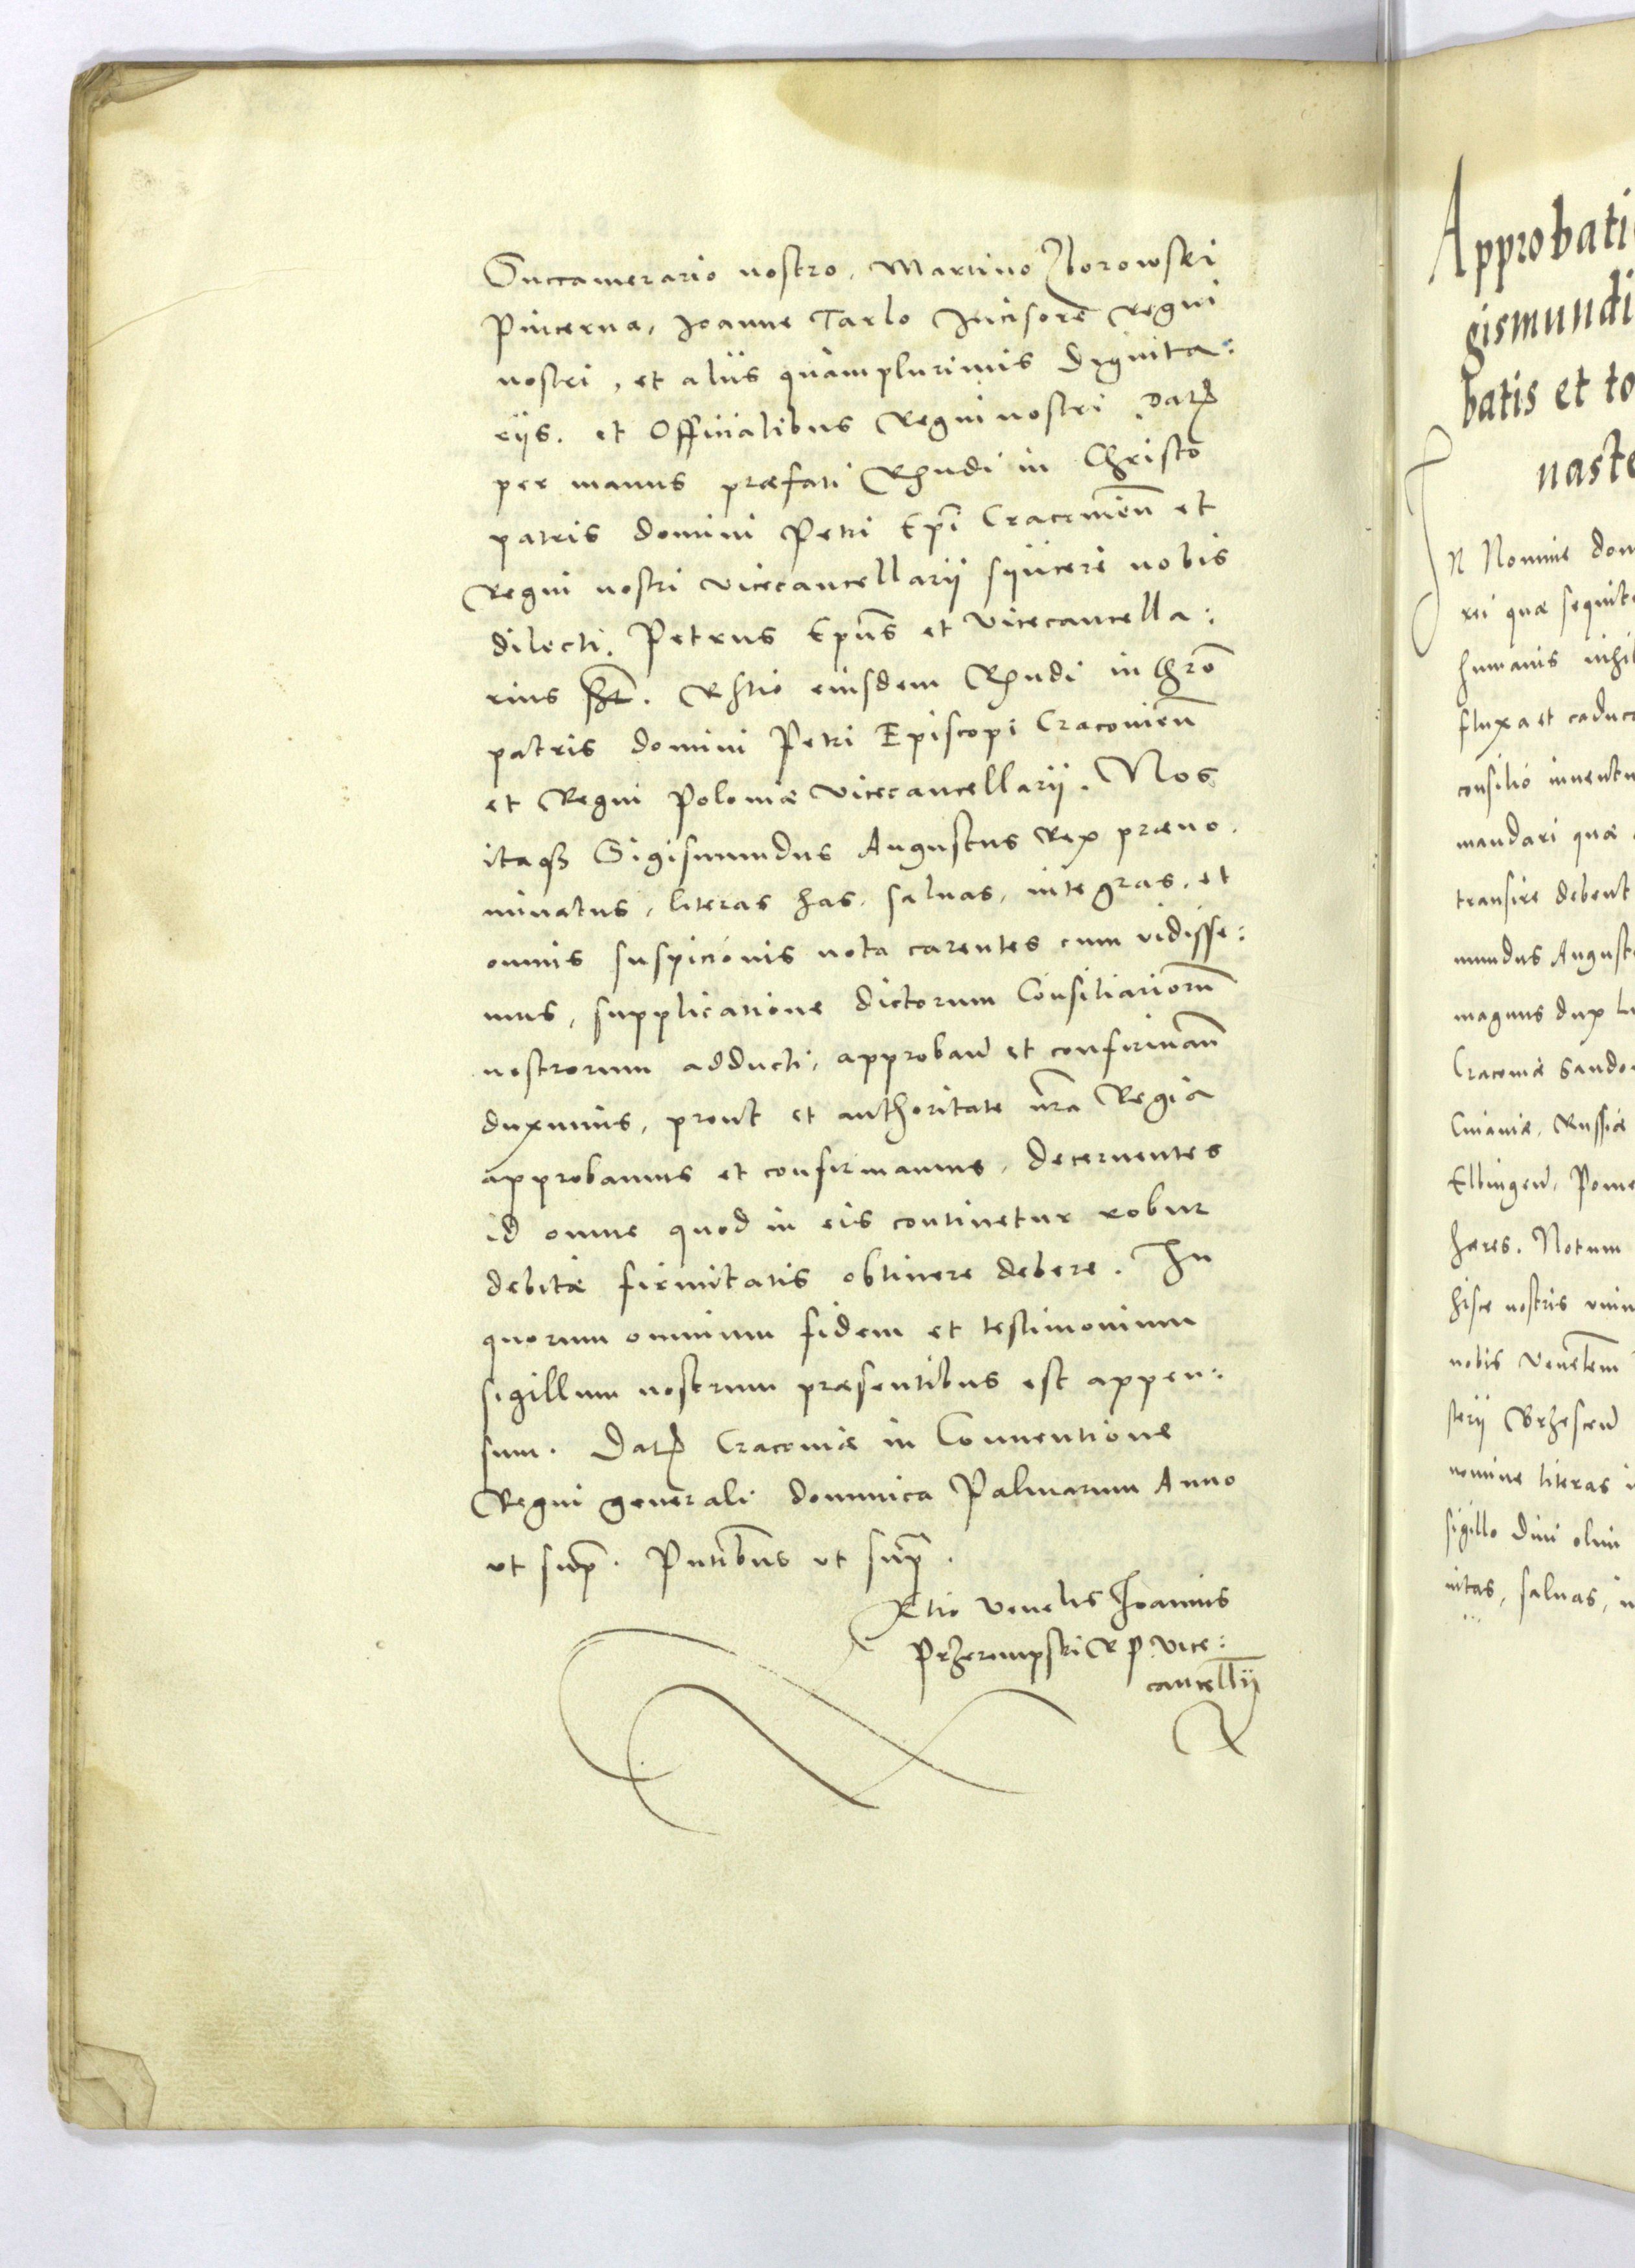 Succamerario nostro, Martino Zborowski
Pincerna, Joanne Tarlo Incisore Regni
nostri, et aliis quamplurimis dignita:
riis. et Officialibus Regni nostri Dat̃
per manus praefati Rñdi in Christo
patris domini Petri Epĩ Cracovieñ et
Regni nostri vicecancellarij syncere nobis
dilecti. Petrus Epũs et Vicecancella:
rius sst. Rltio eiusdem Rñdi in Chrõ
patris domini Petri Episcopi Cracovieñ
et Regni Poloniae vicecancellarij. Nos
itaq3 Sigismundus Augustus Rex praeno.
minatus, literas has, salvas, integras, et
omnis suspicionis nota carentes cum vidisse:
mus, supplicatione dictorum Consiliariorũ
nostrorum adducti, approbañ et confirmañ
duximus, prout et authoritate nr̃a Regia
approbamus et confirmamus, decernentes
id omne quod in eis continetur robur
debitae firmitatis obtinere debere. In
quorum omnium fidem et testimonium
sigillum nostrum praesentibus est appen:
sum. Dat̃ Cracoviae in Conventione
Regni generali dominica Palmarum Anno
ut sup̃. Pñtibus ut sup̃.
Rltio Venelis Joannis
Przerempski R P Vice:
cancell̃ij
Approbati
gismundi
batis et to
naste
IN Nomine dom
rei quae sequit
humanis nihil
fluxa et caduc
consilio inventu
mandari quae
transire debent
mundus August
magnus dux Li
Cracoviae Sando
Cuiaviae, Russiae
Elbingeñ, Pome
haeres. Notum
hisce nostris
nobis Venelem
sterij Brzesceñ
nomine literas i
sigillo divi olim
nitas, salvas, i